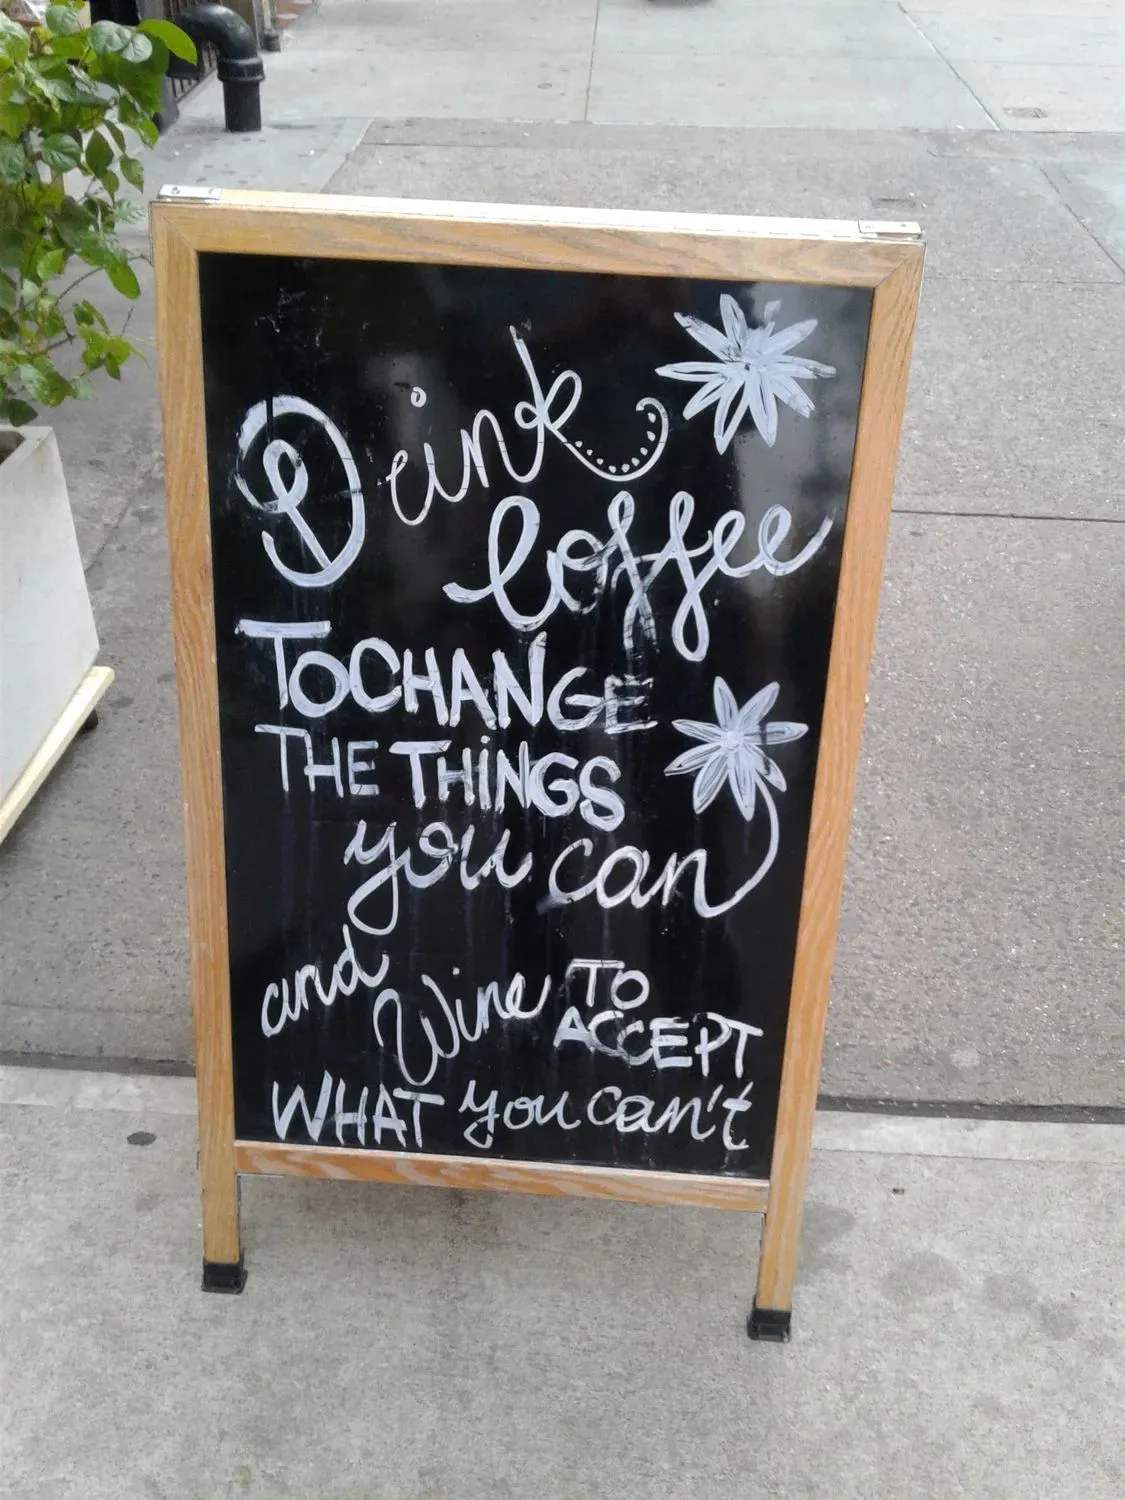 Drink
Coffee
TO CHANGE
THE THINGS
you can
and Wine TO
ACCEPT
WHAT you can't